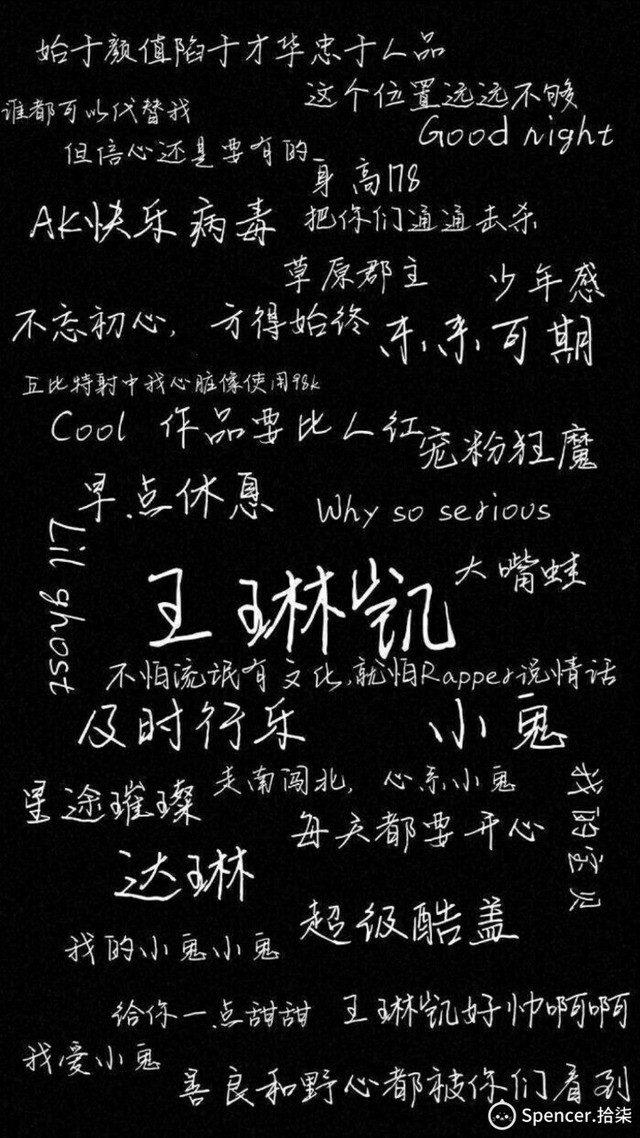 始于颜值陷于才华忠于人品
这个位置远远不够
谁都可以代替我
Good night
但信心还是要有的
身高178
AK快乐病毒
把你们通通击杀
草原郡主
少年感
不忘初心，方得始终
未来可期
丘比特射中我心脏像使用98k
Cool
作品要比人红
宠粉狂魔
早点休息
Why so serious
Lil ghost
大嘴蛙
王琳凯
不怕流氓有文化,就怕Rapper说情话
及时行乐
小鬼
走南闯北，心系小鬼
我的宝贝
星途璀璨
每天都要开心
达琳
超级酷盖
我的小鬼小鬼
给你一点甜甜
王琳凯好帅啊啊
我爱小鬼
善良和野心都被你们看到
Spencer.拾柒